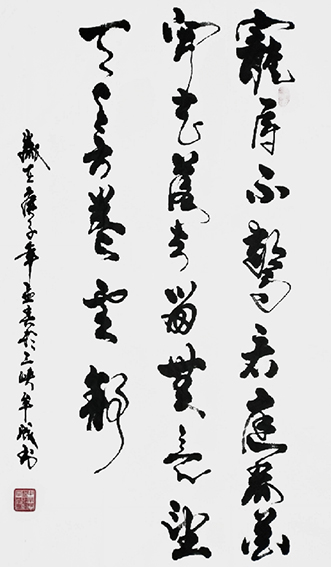 寵辱不驚看庭前花
開花落去留無意望
天上雲卷雲舒
歲在庚子年孟春於三峽牟成书